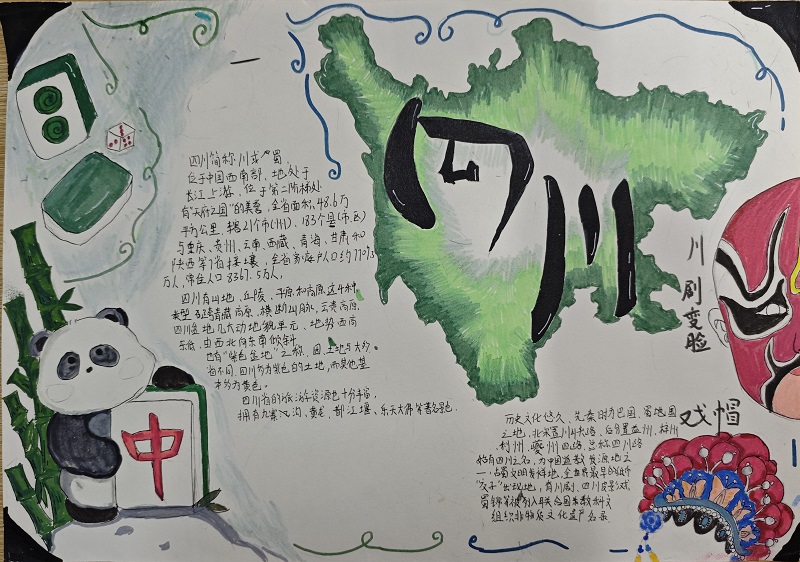 四川
四川简称川或蜀
位于中国西南部,地处于
长江上游,位于第二阶梯处
有"天府之国"的美誉,全省面积48.6万
平方公里,辖21个市(州),183个县(市、区)
与重庆、贵州、云南、西藏、青海、甘肃和
陕西等7省接壤,全省
万人,常住人口8367.5万人,
四川有山地、丘陵、平原和高原这4种
类型 青藏高原、横断山脉、云贵高原、
四川盆地几大地貌单元、地势西高
东低,由西北向东南倾斜
也有"紫色盆地"之称,因土地与大
省不同,四川多为紫色的土地,而其他基
本多为黄色。
四川省的旅游资源也十分丰富,
拥有九寨沟、黄龙、都江堰、乐天大佛等著名景
中
川剧变脸
戏帽
历史文化悠久、先秦时为巴国、蜀地国
之地,北宋置川峡路,后分置益州,梓州
利州,夔州四路,总称四川路
始有四川之名,为中国道教发源地之
一,古蜀文明发祥地,全世界最早的纸币
"交子"出现地,有川剧、四川皮影戏
蜀锦等被列入联合国教科文
组织非物质文化遗产名录